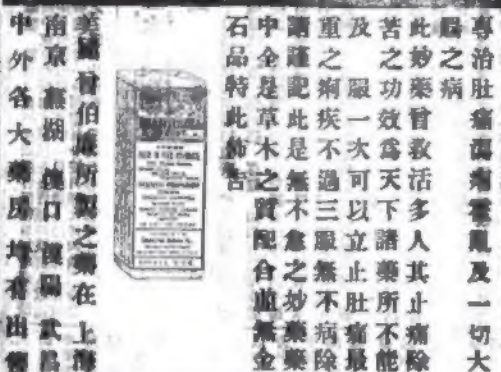 專治肚痛瀉痢霍亂及一切大
腸之病
此妙藥曾救活多人其止痛除
苦之功效爲天下諸藥所不能
及 服一次可以立止肚痛最
重之痢疾不過三服無不病除
請謹記此是無不愈之妙藥藥
中全是草木之質配合並無金
石品特此佈告
美國伯所製之藥在 上海
南京 蕪湖 漢口 漢陽 武昌
中外各大藥房 均有出售